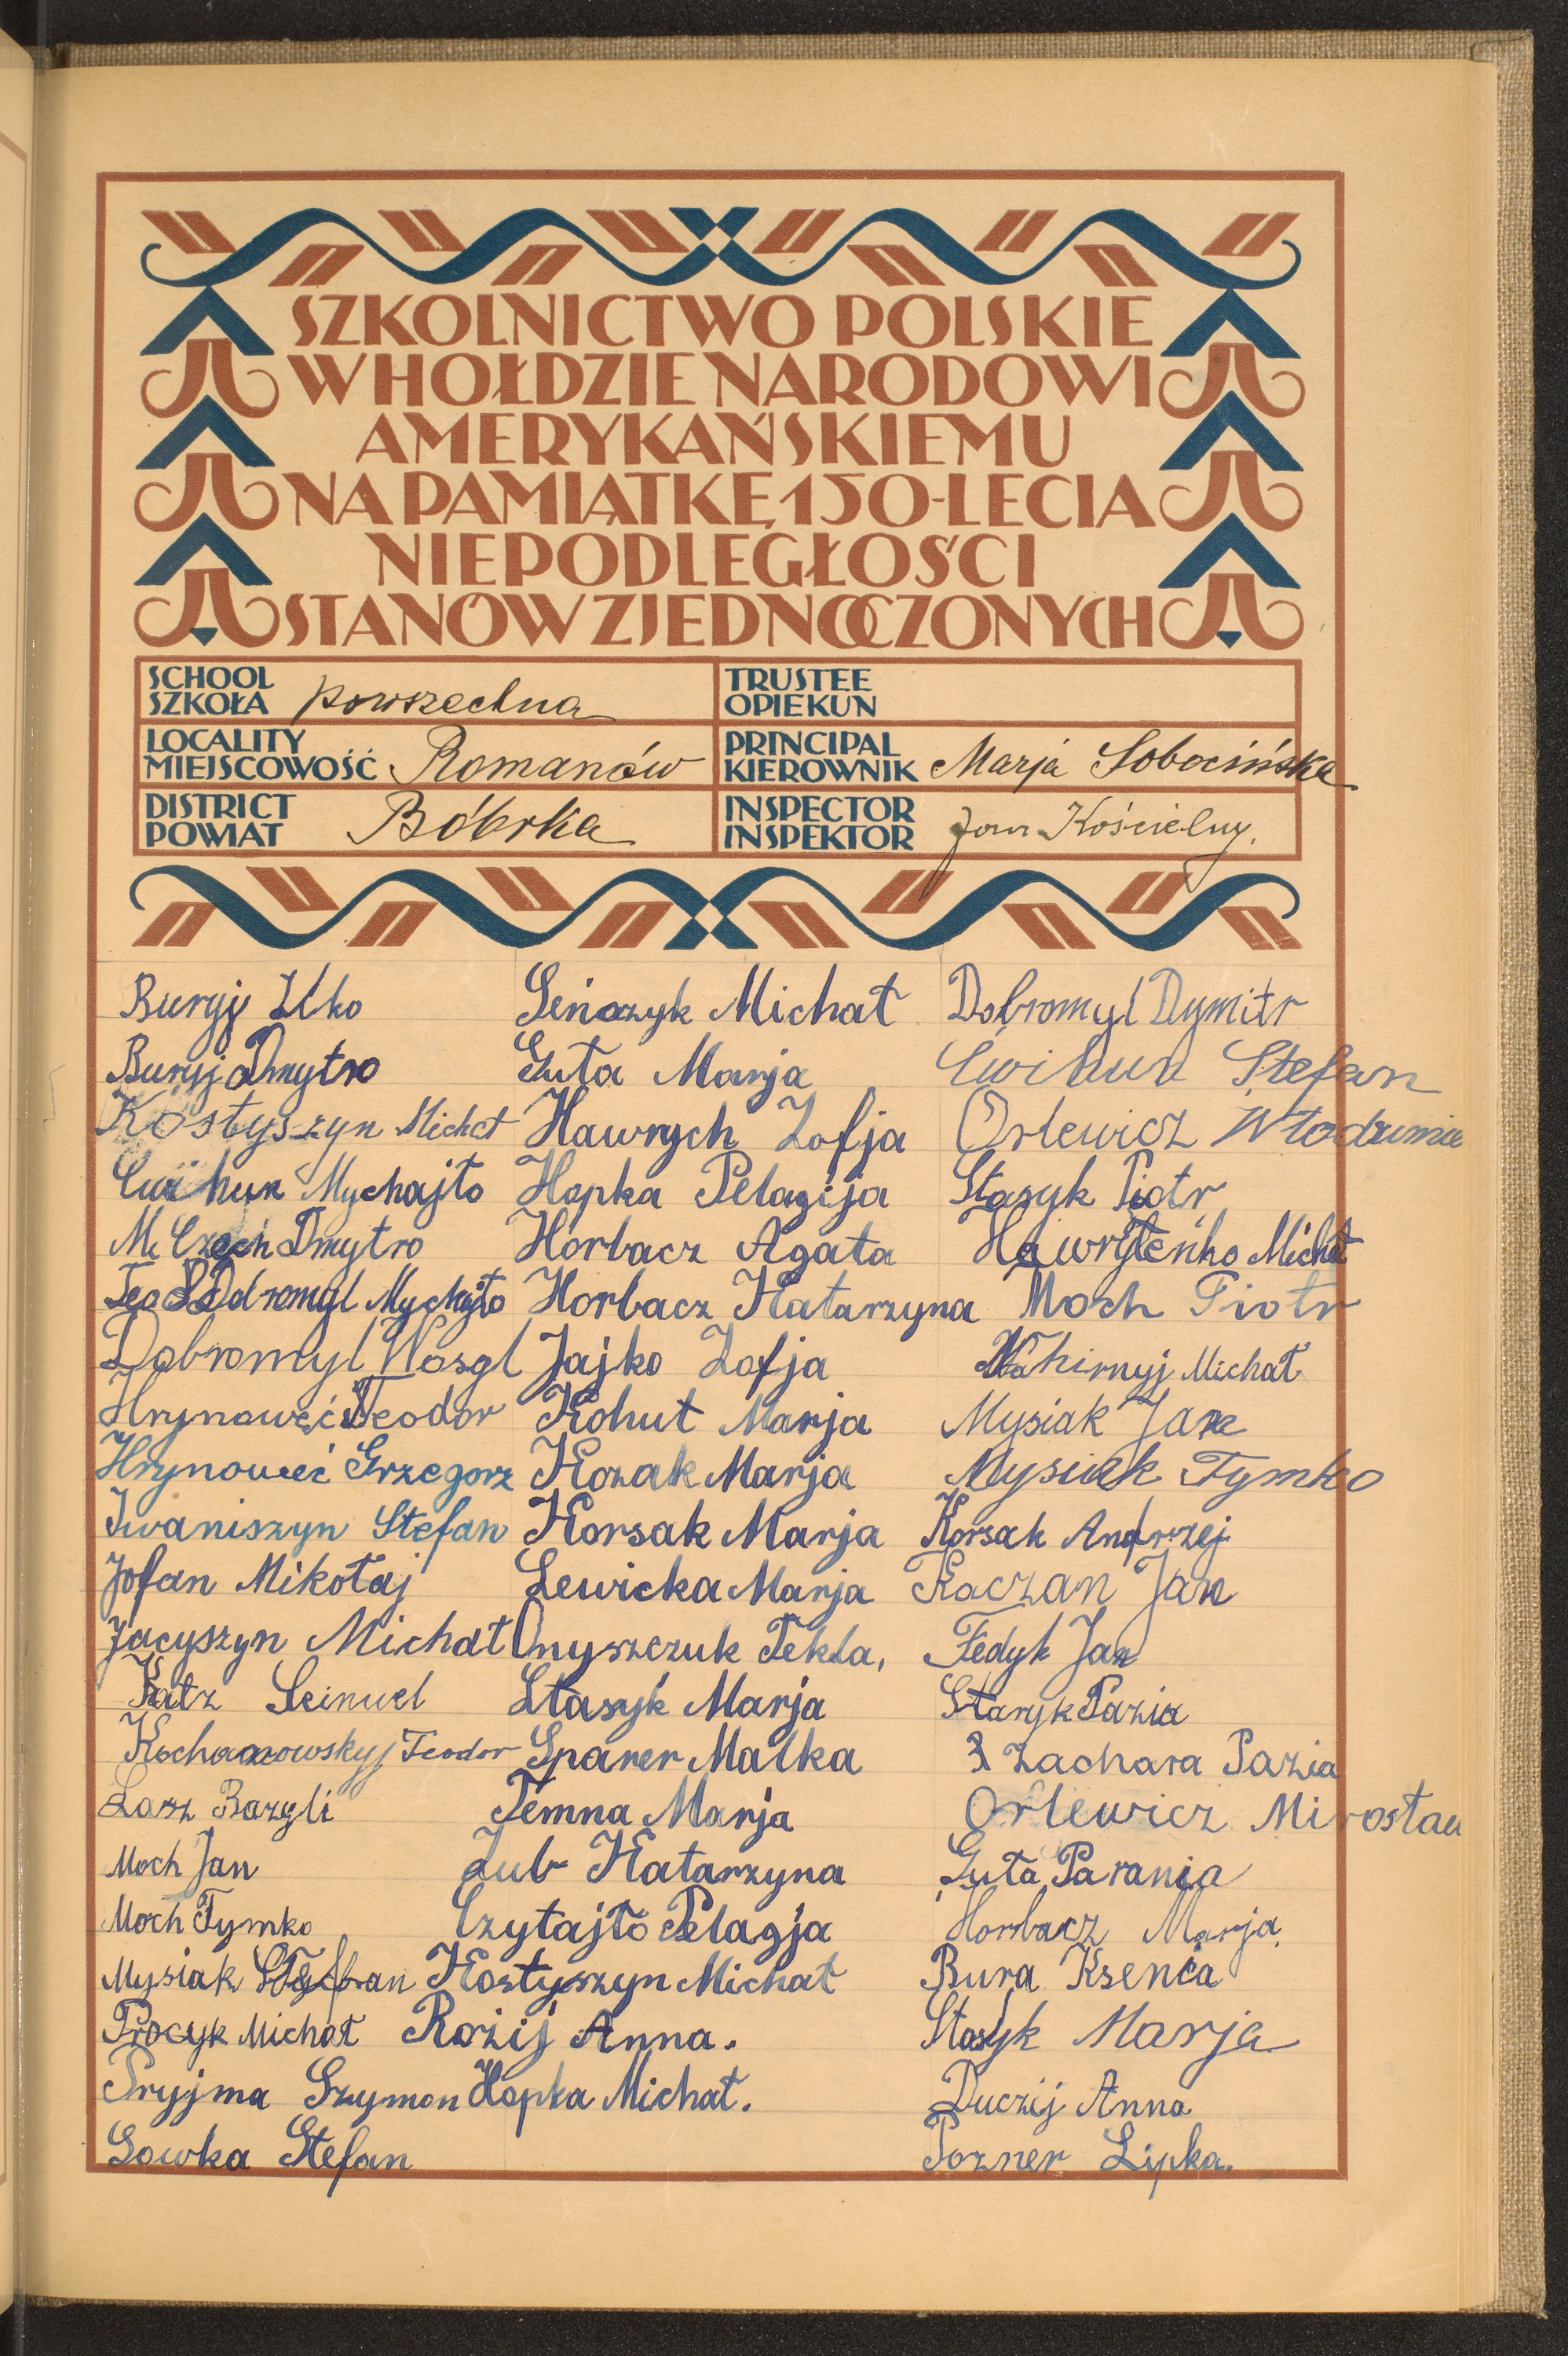 SZKOLNICTWO POLSKIE
W HOŁDZIE NARODOWI
AMERYKAŃSKIEMU
NA PAMIĄTKĘ 150-LECIA
NIEPODLEGŁOŚCI
STANÓW ZJEDNOCZONYCH
SCHOOL
SZKOŁA powszechna
TRUSTEE
OPIEKUN
LOCALITY
MIEJSCOWOŚĆ Romanów
PRINCIPAL
KIEROWNIK Marja Sobocińska
DISTRICT
POWIAT Bóbrka
INSPECTOR
INSPEKTOR Jan Kościelny.
Buryj Ilko
Buryj Dmytro
Kostyszyn Michał
Ćwihun Mychajło
Czech Dmytro
Mychajło
Dobromyl Wasyl
Hrynoweć Teodor
Hrynoweć Grzegorz
Iwaniszyn Stefan
Jofan Mikołaj
Jacyszyn Michał
Katz Leinwel
Kochanowskyj Teodor
Łasz Bazyli
Moch Jan
Moch Tymko
Mysiak Stefan
Procyk Michał
Pryjma Szymon
Sowka Stefan
Seńczyk Michał
Guta Marja
Hawrych Zofja
Hopka Pelagija
Horbacz Agata
Horbacz Katarzyna
Jajko Zofja
Kohut Marja
Kozak Marja
Korsak Marja
Lewicka Marja
Onyszczuk Tekla,
Stasyk Marja
Sparer Malka
Temna Marja
Zub Katarzyna
Czytajło Pelagja
Kostyszyn Michał
Rożij Anna.
Hopka Michał.
Dobromyl Dymitr
Ćwihun Stefan
Orlewicz Włodzimie
Stasyk Piotr
Hawryleńko Michał
Moch Piotr
Nahirnyj Michał
Mysiak Jan
Mysiak Tymko
Korsak Andrzej
Kaczan Jan
Fedyk Jan
Stasyk Pazia
Zachara Pazia
Orlewicz Mirosław
Guta Parania
Horbacz Marja
Bura Ksenia
Stasyk Marja
Duczij Anna
Pozner Lipka.